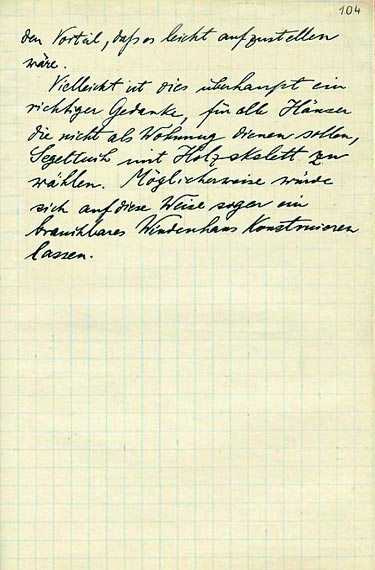 104
den Vorteil, daß es leicht aufzustellen
wäre.
Vielleicht ist dies überhaupt ein
richtiger Gedanke, für alle Häuser
die nicht als Wohnung dienen sollen,
Segeltuch mit Holzskelett zu
wählen. Möglicherweise würde
sich auf diese Weise sogar ein
brauchbares Windenhaus konstruieren
lassen.